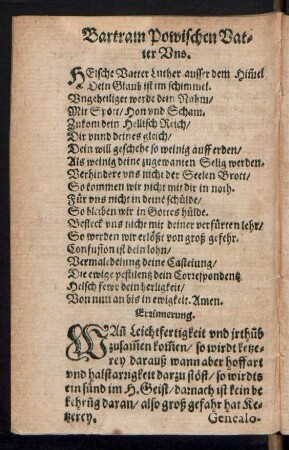 Bartram Powischen Vat-
ter Vns.
HElsche Vatter Luther ausser dem Him̃el
Dein Glaub ist im schimmel.
Vngeheiliget werde dein Nahm/
Mit Spott/ Hon vnd Scham.
Zukom dein Hellisch Reich/
Dir vnnd deines gleich/
Dein will geschehe so weinig auff erden/
Als weinig deine zugewanten Selig werden.
Verhindere vns nicht der Seelen Brott/
So kommen wir nicht mit dir in noth.
Für vns nicht in deine schülde/
So bleiben wir in Gottes hülde.
Befleck vns nicht mit deiner verfürten lehr/
So werden wir erlößt von groß gefehr.
Confusion ist dein lohn/
Vermaledeiung deine Casteiung/
Die ewige pestilentz dein Correspondentz
Helsch fewr dein herligkeit/
Von nun an bis in ewigkeit. Amen.
Erinnerung.
WAñ Leichtfertigkeit vnd jrthũb
zusam̃en kom̃en/ so wirdt ketze-
rey darauß wann aber hoffart
vnd halstarrigkeit darzu stöst/ so wirdts
ein sünd im H. Geist/ darnach ist kein be
kehrũg daran/ also groß gefahr hat Ke-
tzerey.
Genealo-